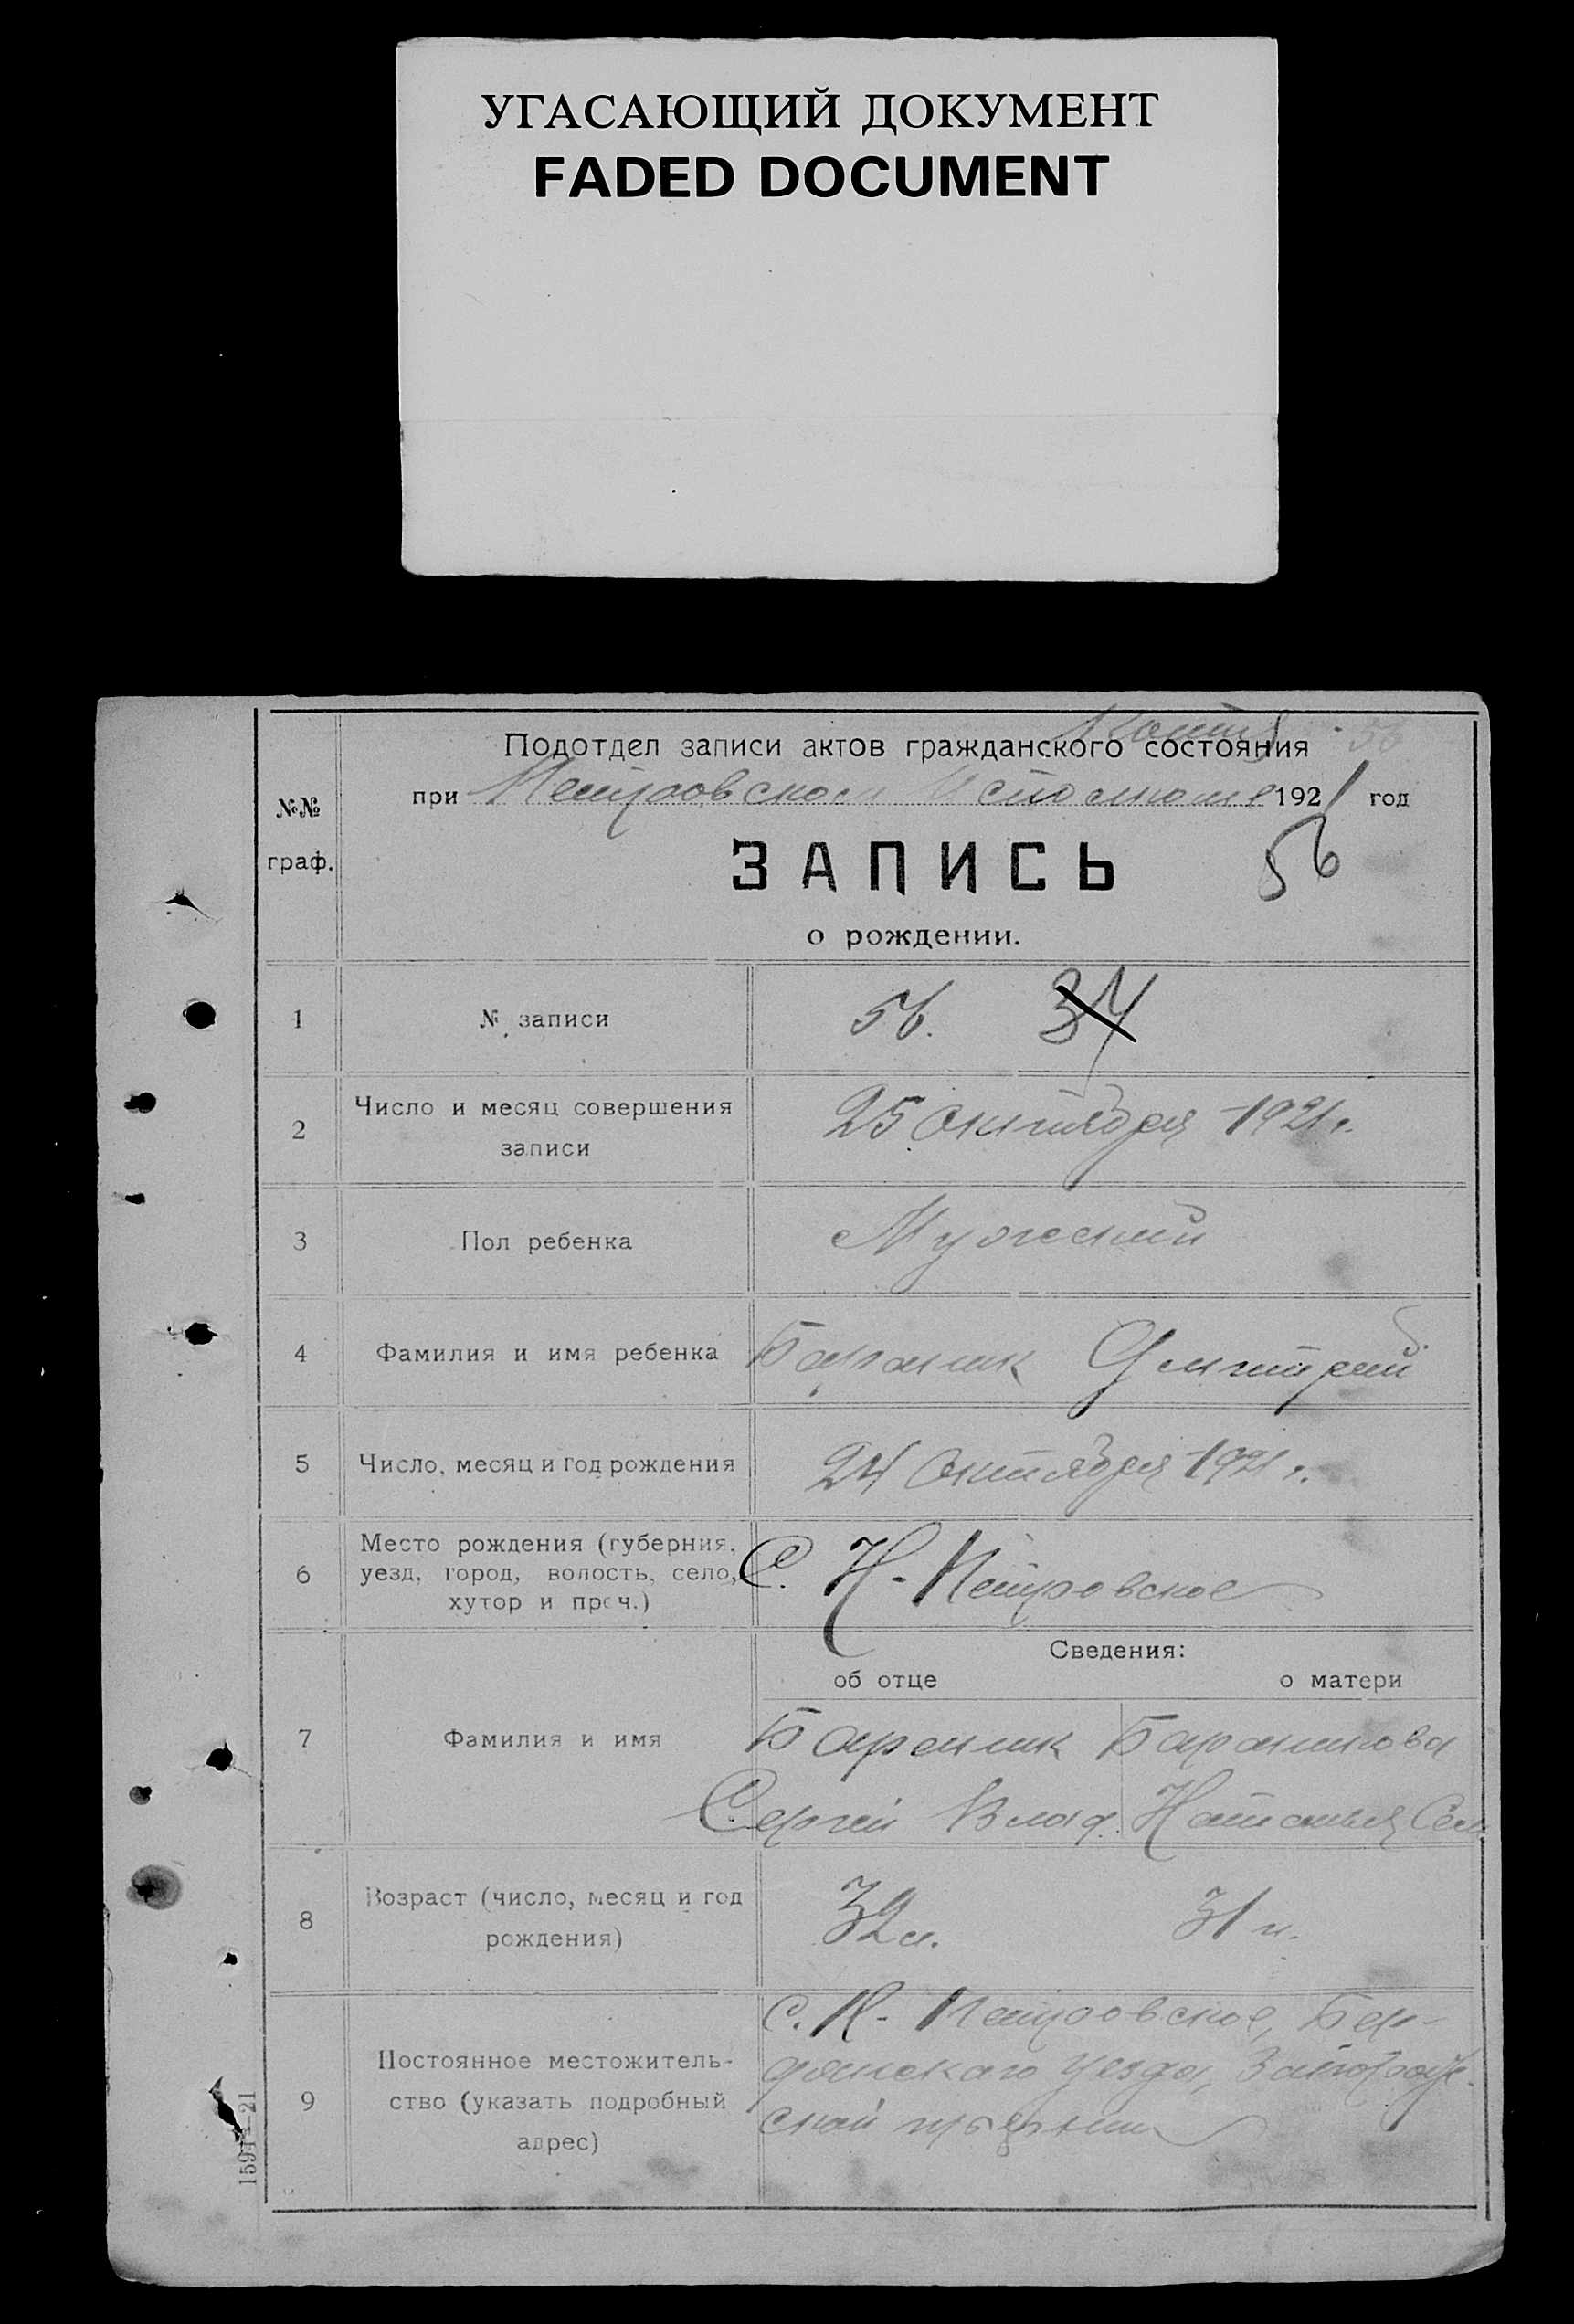 УГАСАЮЩИЙ ДОКУМЕНТ
FADED DOCUMENT
56
Подотдел записи актов гражданского состояния
при Петровском 1921 год
№№ граф.
ЗАПИСЬ 56
о рождении.
1 № записи 56. 34
2 Число и месяц совершения
записи
25 Октября 1921 г.
3 Пол ребенка Мужеский
4 Фамилия и имя ребенка Бараник Дмитрий
5 Число, месяц и год рождения 24 Октября 1921 г.
6 Место рождения (губерния,
уезд, город, волость, село,
хутор и проч.)
С. Н-Петровское
Сведения:
об отце о матери
7 Фамилия и имя
Бараник Бараникова
Сергей Влад. Наталья Сем
8 Возраст (число, месяц и год
рождения)
32 л. 31 л.
9 Постоянное местожитель-
ство (указать подробный
адрес)
с. Н-Петровское, Бер-
дянскаго уезда, Запорож-
ской губернии
1591—21